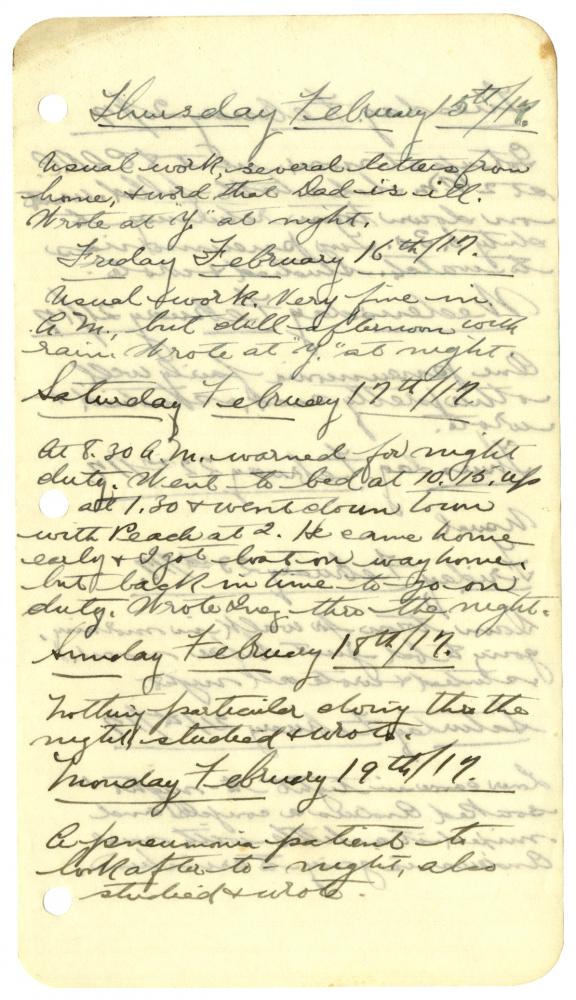 Thursday February 15th/17.
Usual work, several letters from
home, & word that Dad is ill.
Wrote at "Y." at night.
Friday February 16th/17.
Usual work. Very fine in
A.M., but dull afternoon with
rain. Wrote at "Y." at night.
Saturday February 17th/17.
At 8.30 A.M. warned for night
duty. Went to bed at 10.15, up
at 1.30 & went down town
with Peach at 2. He came home
early & I got lost on way home,
but back in time to go on
duty. Wrote Inez thro the night.
Sunday February 18th/17.
Nothing particular doing thro the
night, studied & wrote.
Monday February 19th/17.
A pneumonia patient to
look after to-night, also
studied & wrote.